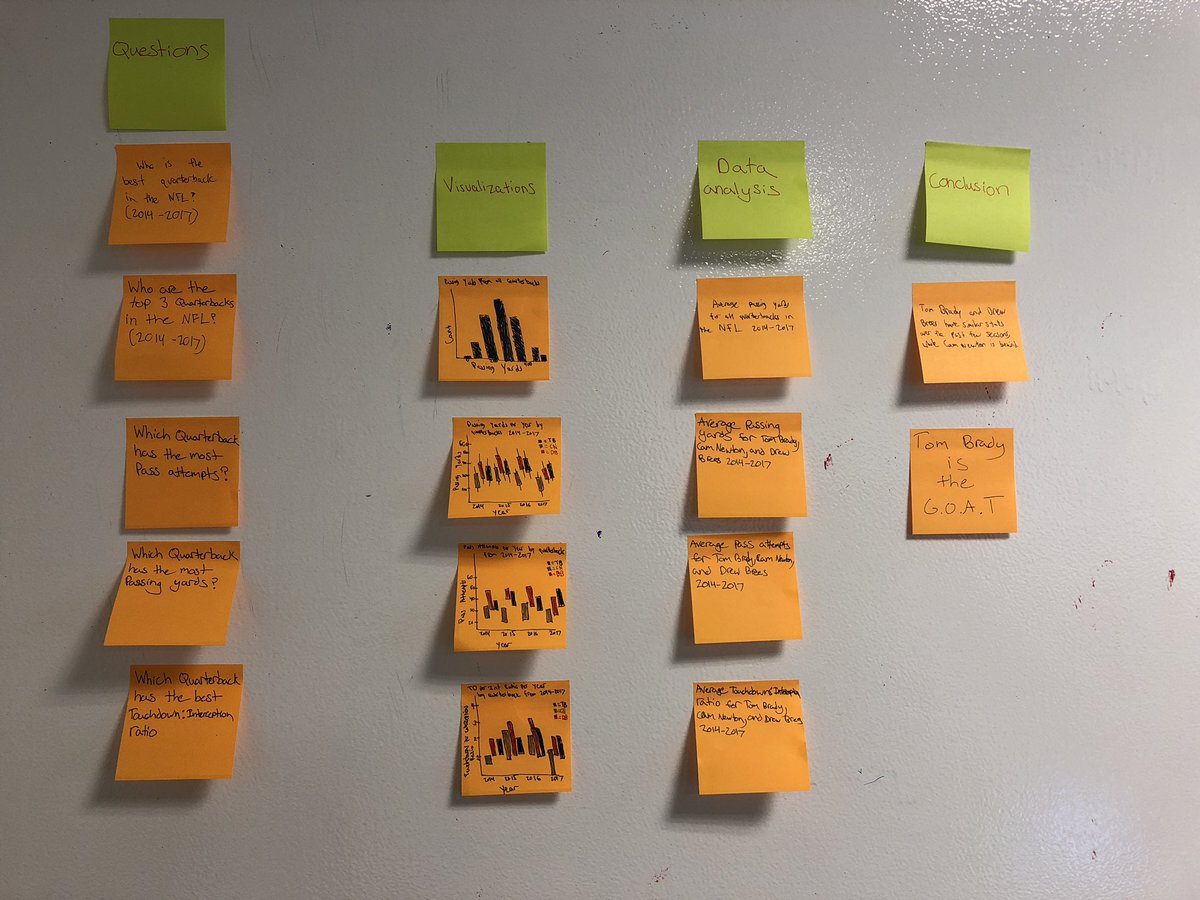 Questions
Who is the
best quarterback
in the NFL?
(2014-2017)
Who are the
top 3 Quarterbacks
in the NFL?
(2014-2017)
Which Quarterback
has the most
Pass attempts?
Which Quarterback
has the most
Passing yards?
Which Quarterback
has the best
Touchdown:Interception
ratio
Visualizations
Count
Passing Yards
Passing Yards Per Year by
2014-2017
Passing Yards
2014 2015 2016 2017
Year
Pass Attempts Per Year by quarterback
from 2014-2017
Pass Attempts
2014 2015 2016 2017
Year
TD per Int Ratio Per Year
by quarterback from 2014-2017
ratio
2014 2015 2016 2017
Year
Data
analysis
Average passing yards
for all
the NFL 2014-2017
Average Passing
yards for Tom Brady,
Cam Newton, and Drew
Brees 2014-2017
Average Pass attempts
for Tom Brady, Cam Newton,
and Drew Brees
2014-2017
Average Touchdown:Interception
ratio for Tom Brady,
Cam Newton, and Drew Brees
2014-2017
Conclusion
Tom Brady and Drew
Brees have similar stats
over the past few seasons,
while Cam newton is behind
Tom Brady
is
the
G.O.A.T